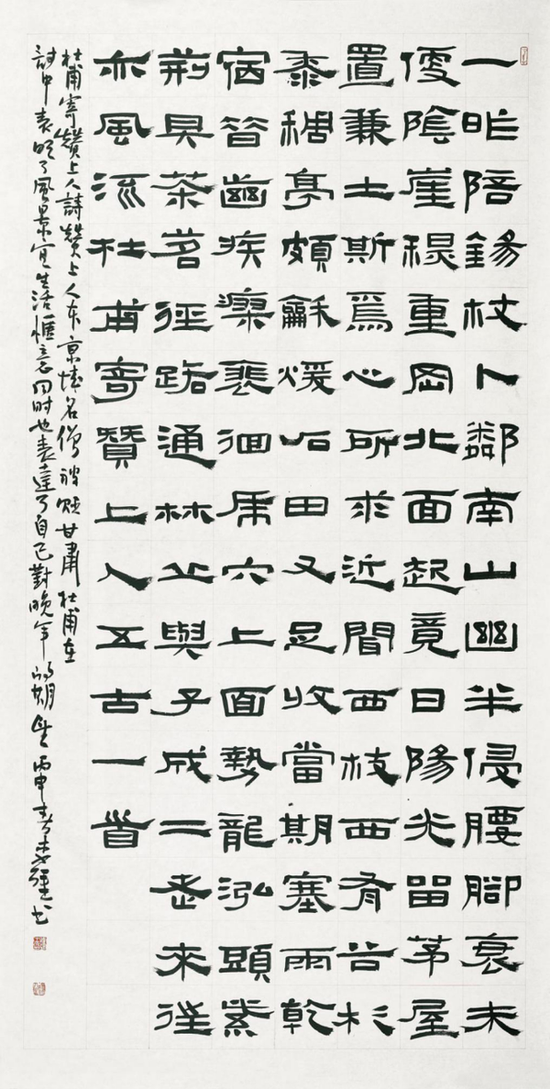 一昨陪錫杖卜鄰南山幽年侵腰腳衰未
便陰崖稷重岡北面起竟日陽光留茅屋
置兼土斯焉心所求近間西枝西有谷杉
黍稠亭頗龢煖石田又足收當期塞雨乾
宿昔齒疾瘳裵徊虎穴上面勢龍泓頭紫
荊具茶茗徑路通林丘與子成二老來往
亦風流杜甫寄贊上人五古一首
杜甫寄贊上人詩贊上人东京名僧被贬甘肅杜甫在
詩中表明了風景宜生活惬意同时也表達了自己對晚年的期望丙申春书